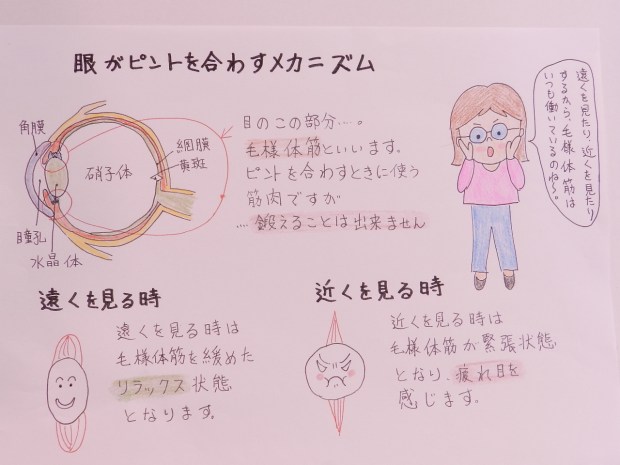 眼がピントを合わすメカニズム
遠くを見たり、近くを見たり
するから、毛様体筋は
いつも働いているのね〜。
角膜
硝子体
網膜
黄斑
瞳孔
水晶体
目のこの部分‥‥。
毛様体筋といいます。
ピントを合わすときに使う
筋肉ですが
‥‥鍛えることは出来ません
遠くを見る時
遠くを見る時は
毛様体筋を緩めた
リラックス状態
となります。
近くを見る時
近くを見る時は
毛様体筋が緊張状態
となり、疲れ目を
感じます。